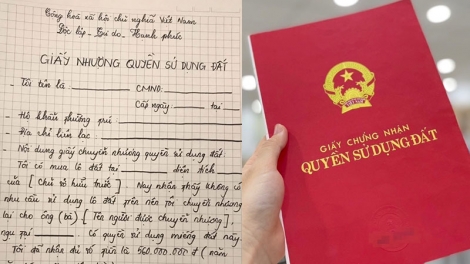 Cộng hoà xã hội chủ nghĩa Việt Nam
Độc lập - Tự do - Hạnh phúc
GIẤY NHƯỢNG QUYỀN SỬ DỤNG ĐẤT
- Tôi tên là CMND:
Cấp ngày tại
- Hộ khẩu thường trú:
- Địa chỉ liên lạc
- Nội dung giấy chuyển nhượng quyền sử dụng đất
Tôi có mua lô đất tại diện tích
của [Chủ sở hữu trước]. Nay nhận thấy không có
nhu cầu sử dụng lô đất trên nên tôi chuyển nhượng
lại cho ông (bà) [Tên người được chuyển nhượng],
ngụ tại có quyền sử dụng miếng đất này.
Tôi đã nhận đủ số tiền là 560.000.000 đ (năm
GIẤY CHỨNG NHẬN
QUYỀN SỬ DỤNG ĐẤT